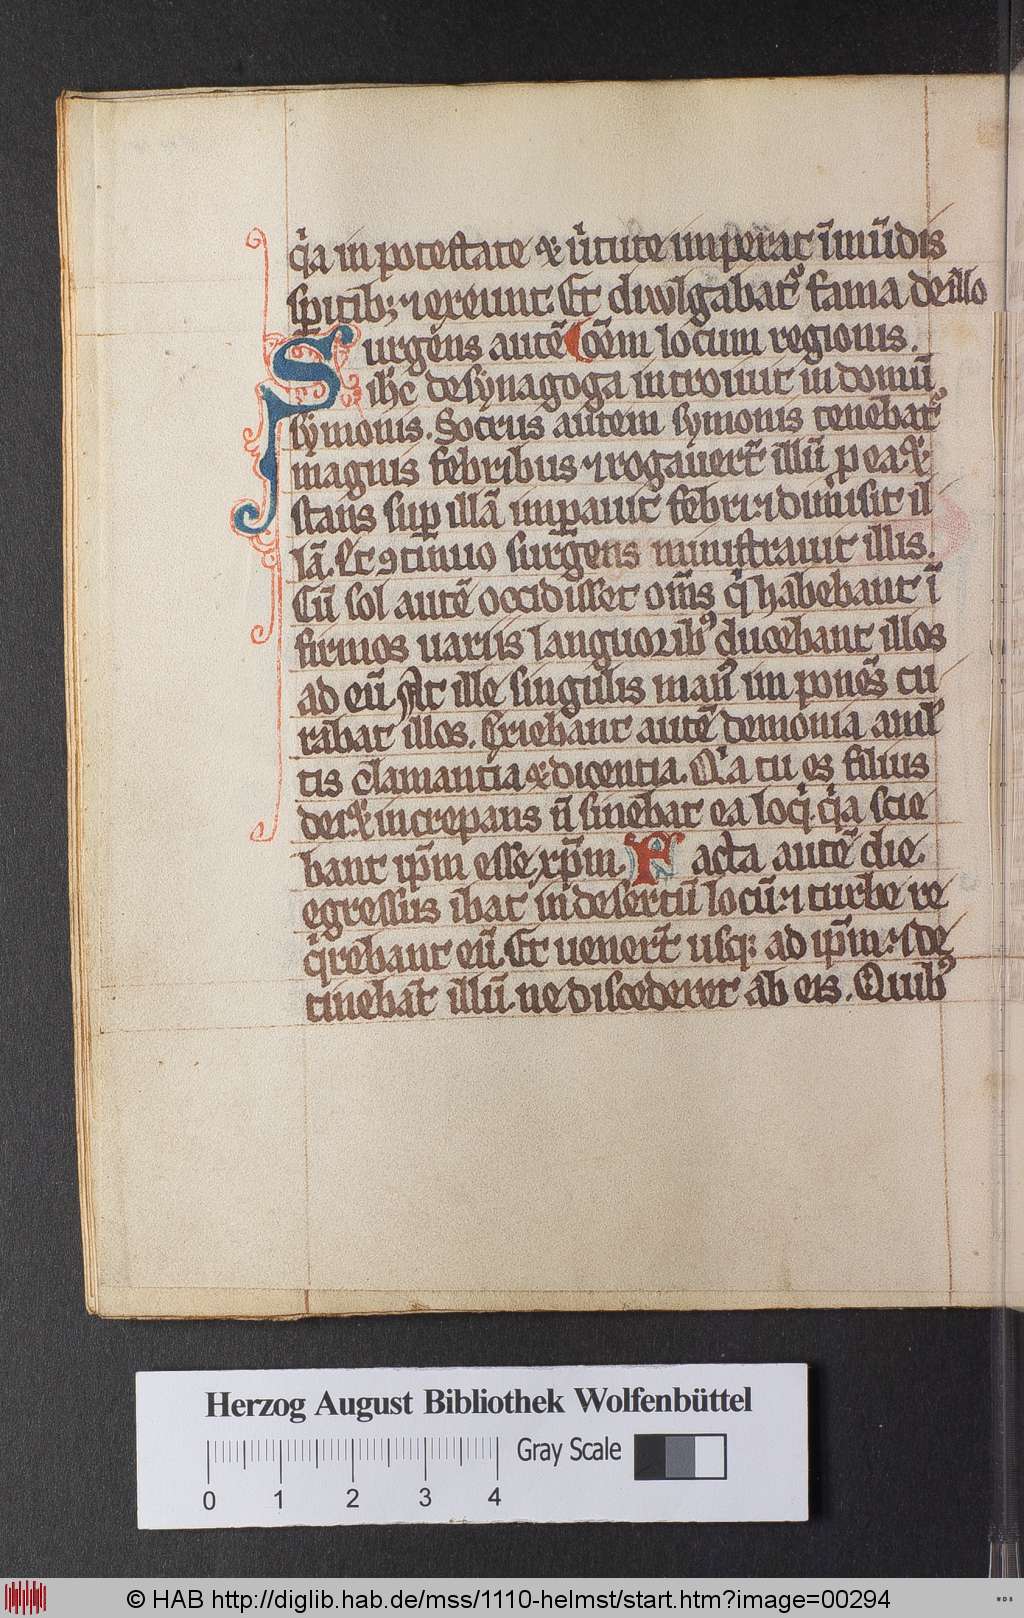 q̇a in potestate & ůtute imperat īmūdis
sp̄itib; ⁊ exeunt. Et diuulgabat᷑ fama de illo
Surgens autē oēm locum regionis.
ih̄c de synagoga introiuit in domū
symonis. Socrus autem symonis tenebat᷑
magnis febribus ⁊ rogauert̄ illū p ea. &
stans suꝑ illā imꝑauit febri ⁊ dimisit il
lā. Et ꝯtinuo surgens ministrauit illis.
Cū sol autē occidisset om̄s q̇ habebant ī
firmos uariis languorib᷒ ducebant illos
ad eū. At ille singulis man᷒ imponēs cu
rabat illos. Exiebant autē demonia a mul
tis clamantia & dicentia. Q̇a tu es filius
dei. & increpans n̄ sinebat ea loq̇. q̇a scie
bant ip̄m esse xp̄m. Facta autē die.
egressus ibat in desertū locū. ⁊ turbe re
q̇rebant eū. Et uenert̄ usq; ad ip̄m. ⁊ de
tinebāt illū. ne discederet ab eis. Quib᷒
Herzog August Bibliothek Wolfenbüttel
Gray Scale
0 1 2 3 4
© HAB http://diglib.hab.de/mss/1110-helmst/start.htm?image=00294